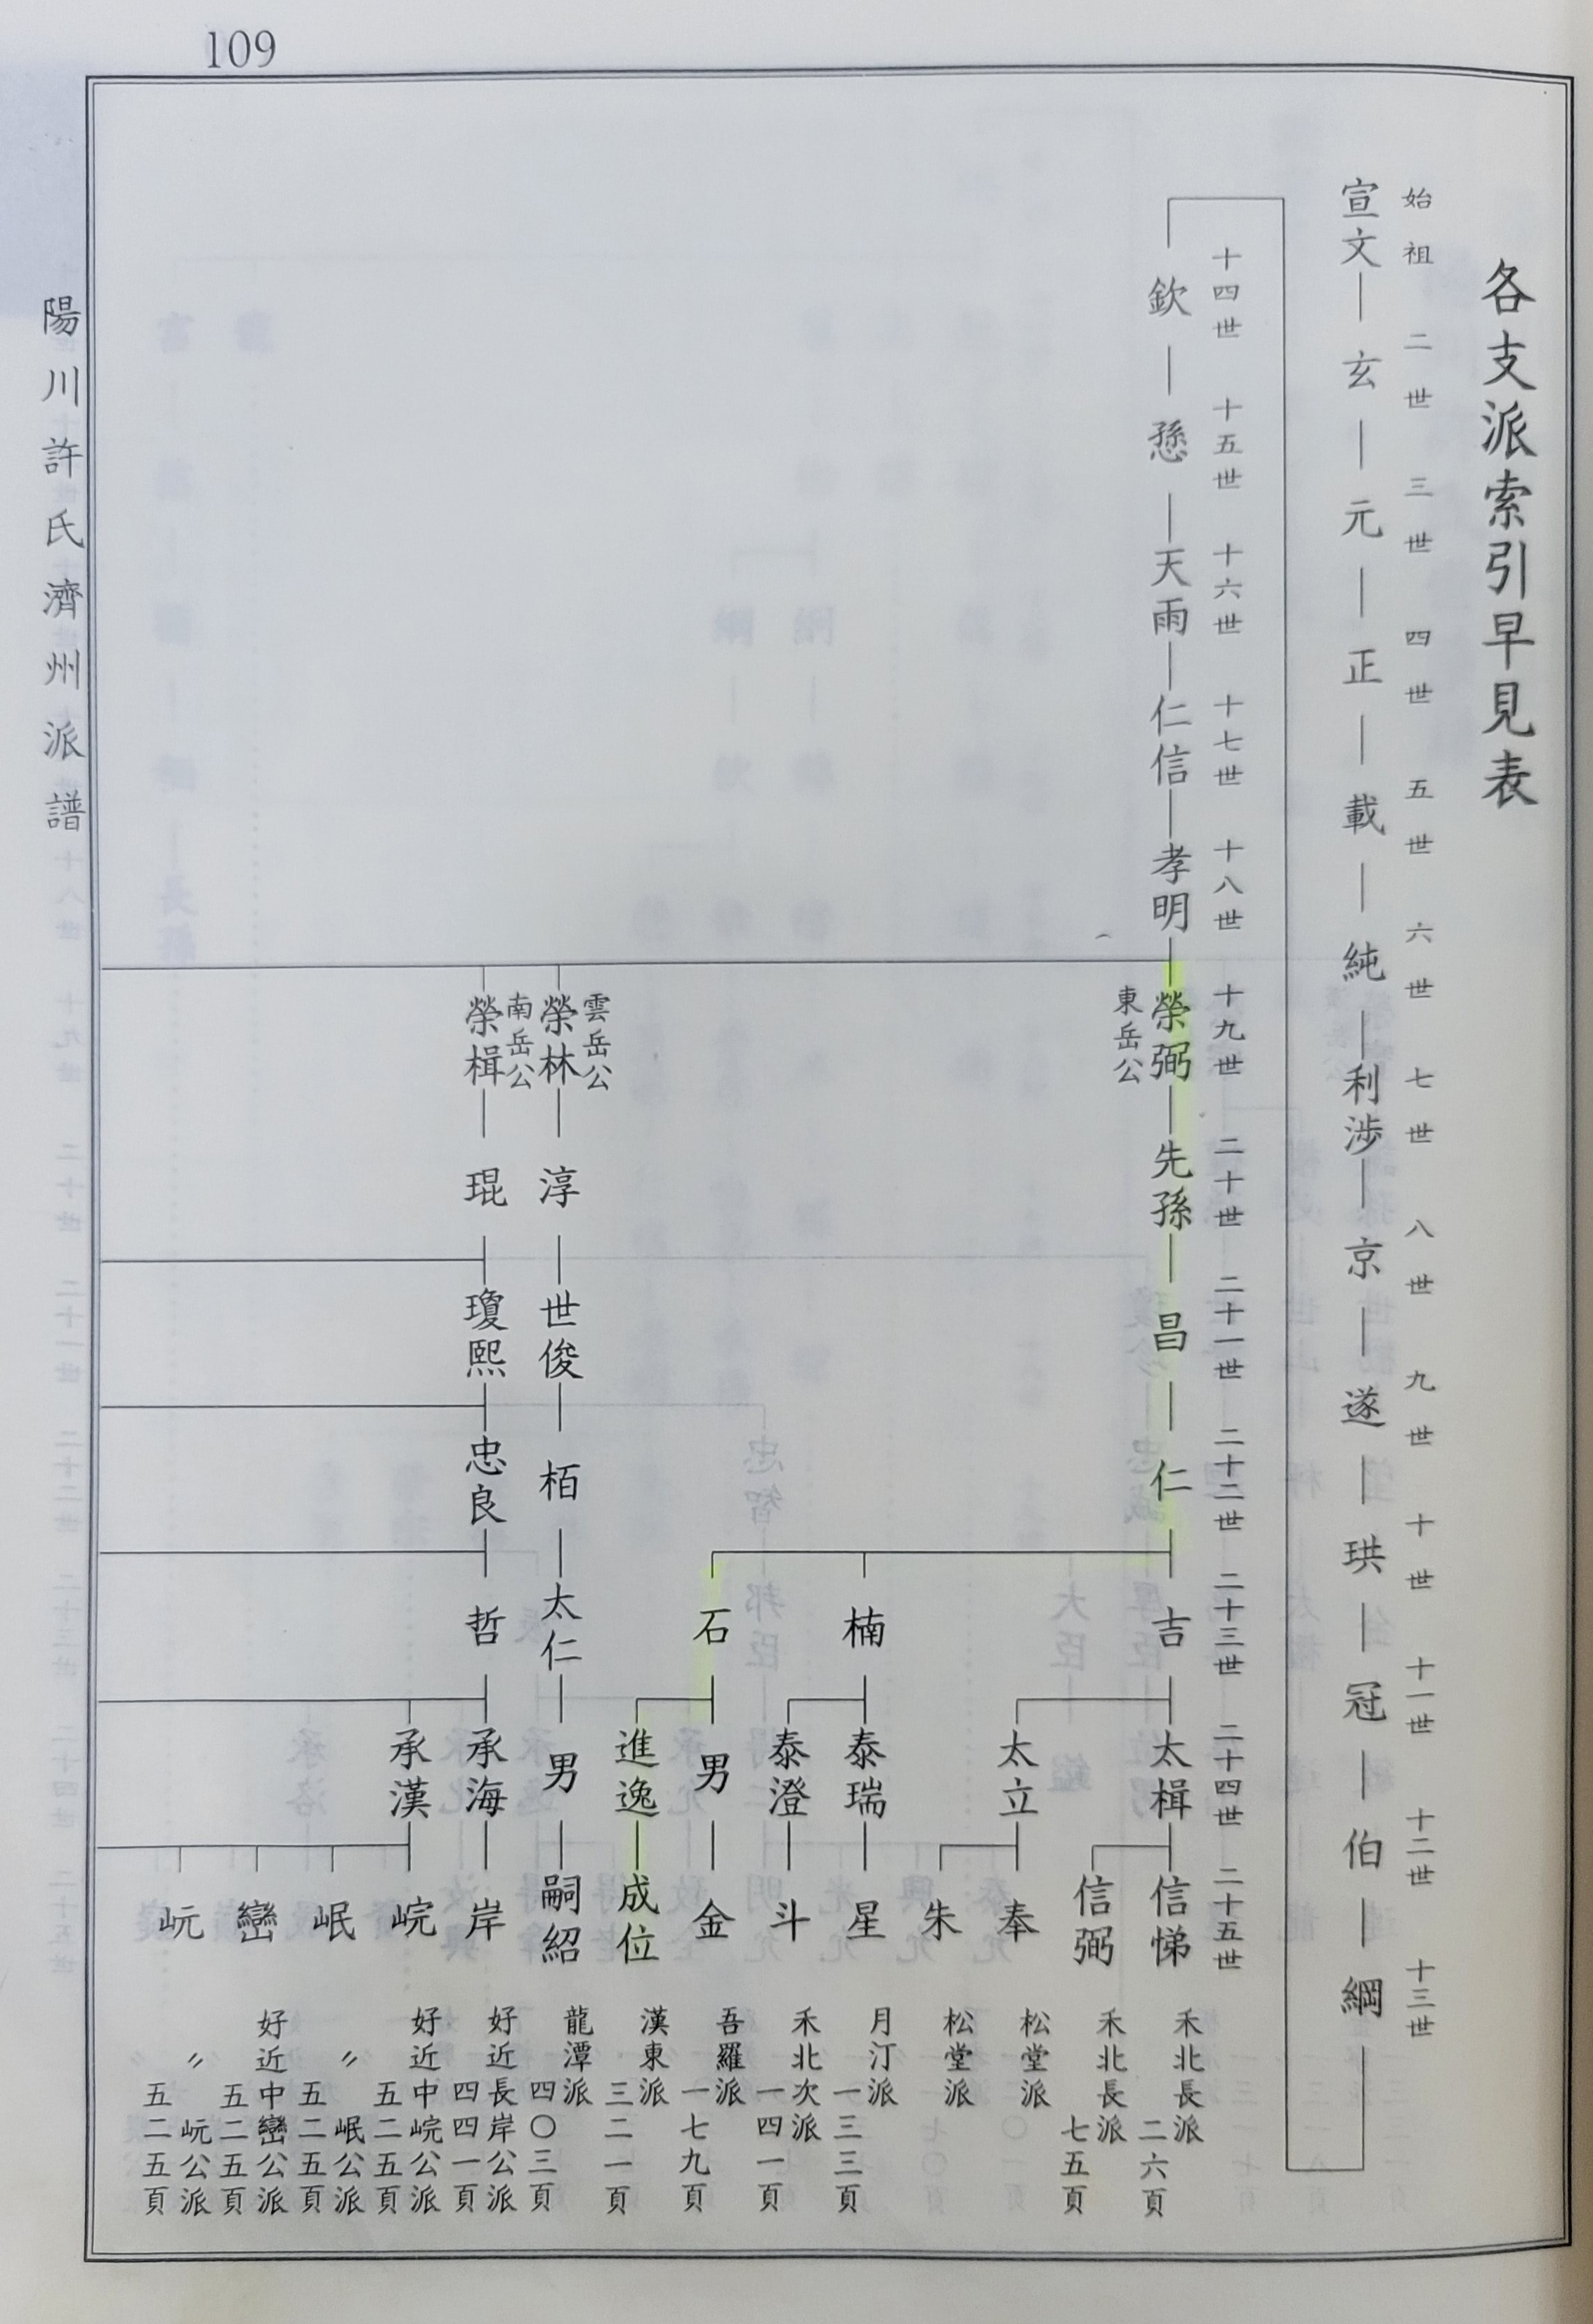 109
各支派索引早見表
始祖 二世 三世 四世 五世 六世 七世 八世 九世 十世 十一世 十二世 十三世
宣文 玄 元 正 載 純 利涉 京 遂 珙 冠 伯 綱
十四世 十五世 十六世 十七世 十八世 十九世 二十世 二十一世 二十二世 二十三世 二十四世 二十五世
欽 愻 天雨 仁信 孝明 榮弼 先孫 昌 仁 吉 太楫 信悌
東岳公
禾北長派
二六頁
信弼
禾北長派
七五頁
太立 奉
松堂派
朱
松堂派
楠 泰瑞 星
月汀派
一三三頁
泰澄 斗
禾北次派
一四一頁
石 男 金
吾羅派
一七九頁
進逸 成位
漢東派
三二一頁
雲岳公
榮林 淳 世俊 栢 太仁 男 嗣紹
龍潭派
四〇三頁
南岳公
榮楫 琨 瓊熙 忠良 哲 承海 岸
好近長岸公派
四四一頁
承漢 岏
好近中岏公派
五二五頁
岷
〃 岷公派
五二五頁
巒
好近中巒公派
五二五頁
岏
〃 岏公派
五二五頁
陽川許氏濟州派譜